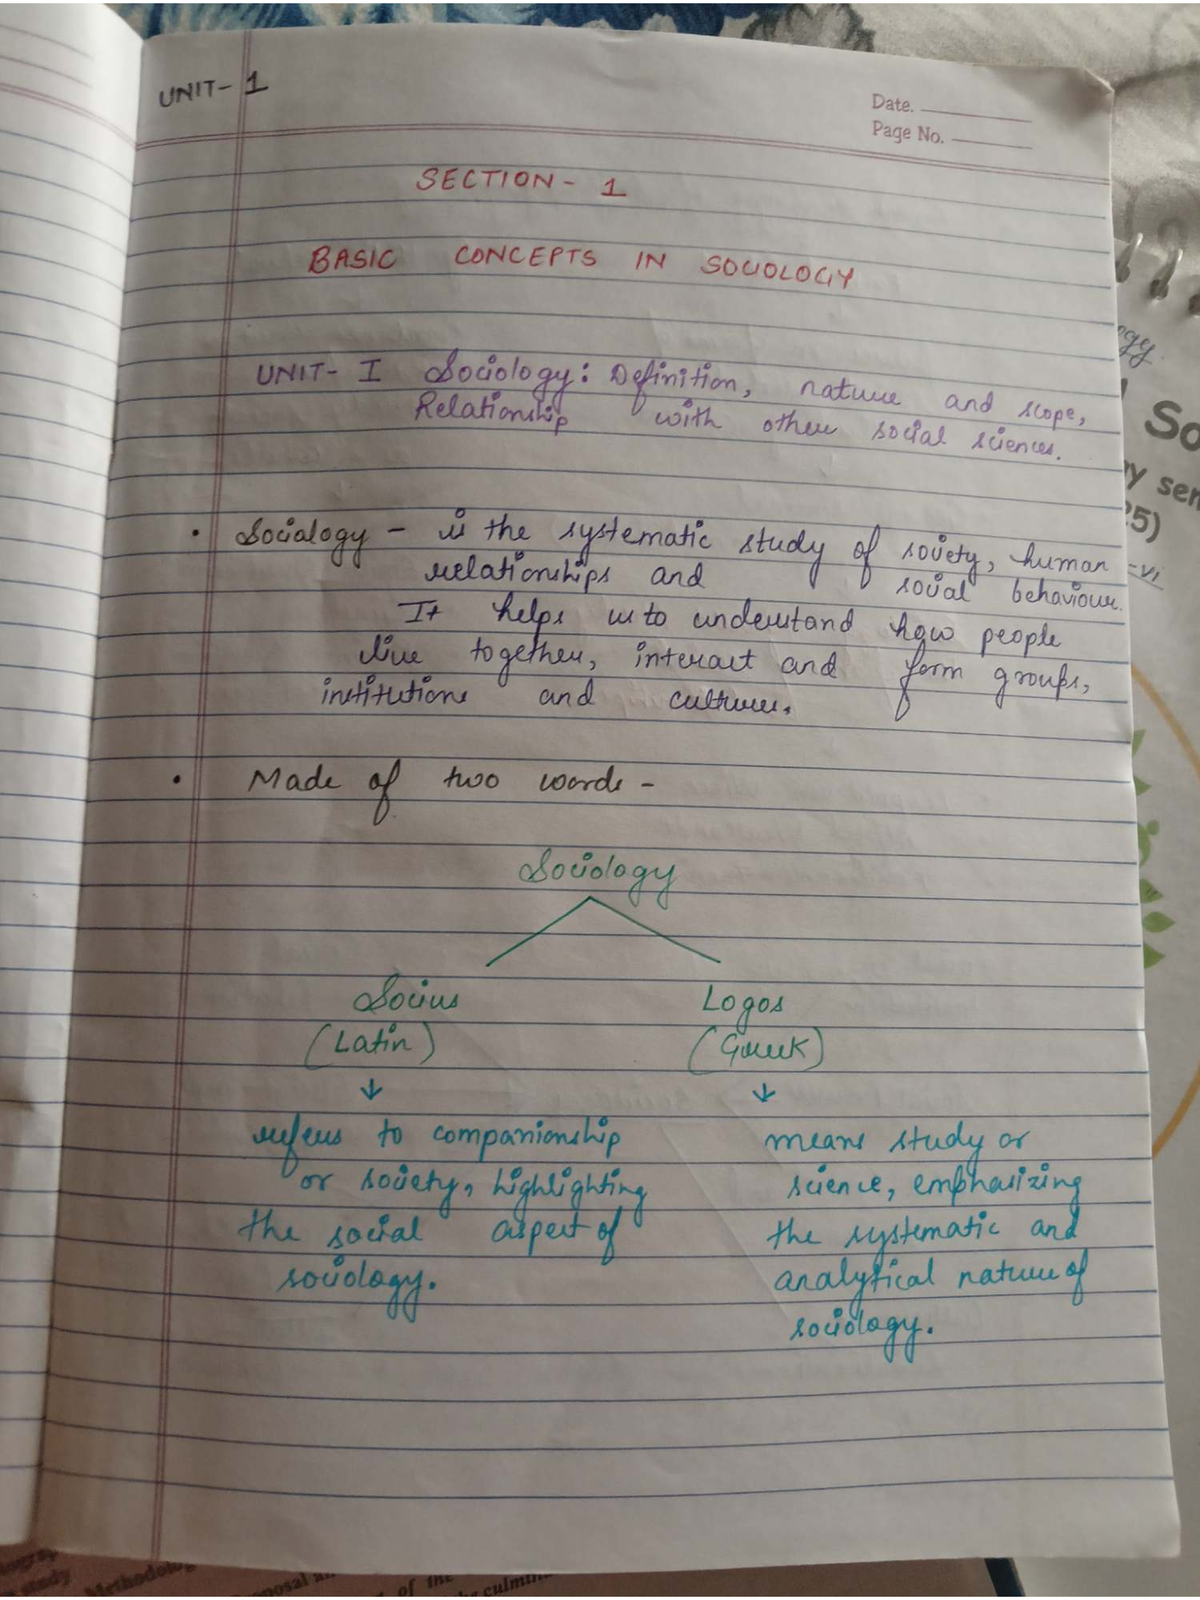 UNIT- 1
Date.
Page No.
SECTION- 1
BASIC CONCEPTS IN SOCIOLOGY
UNIT- I Sociology: Definition, nature and scope,
Relationship with other social sciences.
• Sociology - is the systematic study of society, human
relationships and social behaviour.
It helps us to understand how people
live together, interact and form groups,
institutions and culture.
• Made of two words -
Sociology
Socius
(Latin)
↓
refers to companionship
or society, highlighting
the social aspect of
sociology.
Logos
(Greek)
↓
means study or
science, emphasizing
the systematic and
analytical nature of
sociology.
ogy.
So
y sem
25)
-VI
study
Methodolog
posal an
of the
culmin